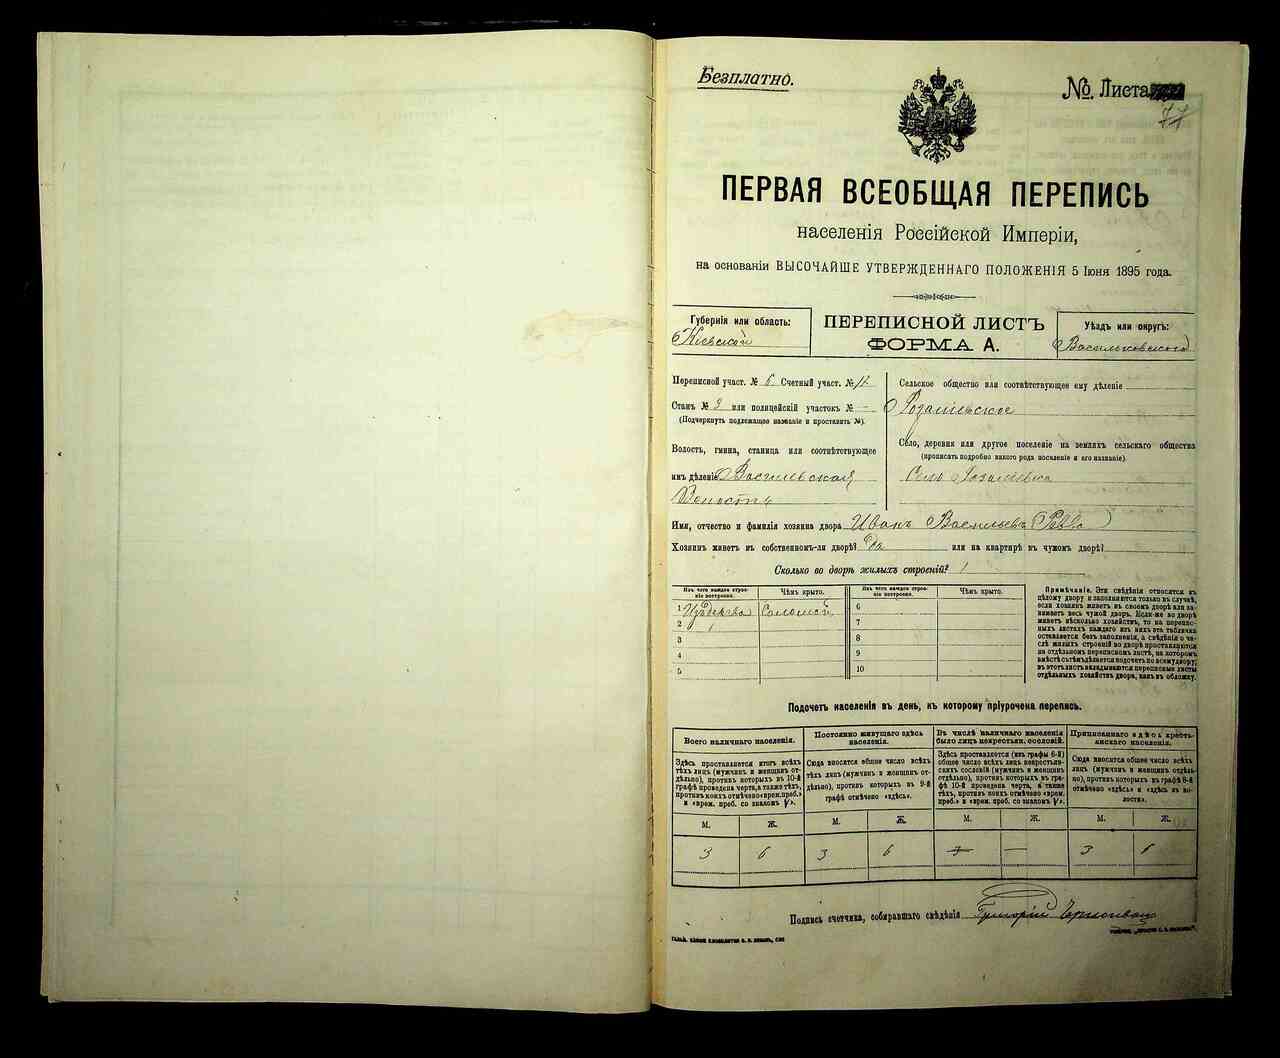 Безплатно.
№ Листа
77
ПЕРВАЯ ВСЕОБЩАЯ ПЕРЕПИСЬ
населенія Россійской Имперіи,
на основаніи ВЫСОЧАЙШЕ УТВЕРЖДЕННАГО ПОЛОЖЕНІЯ 5 Іюня 1895 года.
Губернія или область:
Кіевской
ПЕРЕПИСНОЙ ЛИСТЪ
ФОРМА А.
Уѣздъ или округъ:
Васильковскаго
Переписной участ. № 6 Счетный участ. №
Станъ № 3 или полицейскій участокъ № —
(Подчеркнуть подлежащее названіе и проставить №).
Волость, гмина, станица или соотвѣтствующее
имъ дѣленіе
Волость
Сельское общество или соотвѣтствующее ему дѣленіе
Село, деревня или другое поселеніе на земляхъ сельскаго общества
(прописать подробно какого рода поселеніе и его названіе).
Село
Имя, отчество и фамилія хозяина двора Иванъ Васильевъ
Хозяинъ живетъ въ собственномъ-ли дворѣ? Да или на квартирѣ въ чужомъ дворѣ?
Сколько во дворѣ жилыхъ строеній? 1
Изъ чего каждое строе-
ніе построено.
Чѣмъ крыто.
Изъ чего каждое строе-
ніе построено.
Чѣмъ крыто.
1 Изъ дерева Соломой 6
2 7
3 8
4 9
5 10
Примѣчаніе. Эти свѣдѣнія относятся къ
цѣлому двору и заполняются только въ случаѣ,
если хозяинъ живетъ въ своемъ дворѣ или за-
нимаетъ весь чужой дворъ. Если-же во дворѣ
живетъ нѣсколько хозяйствъ, то на перепис-
ныхъ листахъ каждаго изъ нихъ эта табличка
оставляется безъ заполненія, а свѣдѣнія о чи-
слѣ жилыхъ строеній во дворѣ проставляются
на отдѣльномъ переписномъ листѣ, на которомъ
вмѣстѣ съ тѣмъ дѣлается подсчетъ по всему двору;
въ этотъ листъ вкладываются переписные листы
отдѣльныхъ хозяйствъ двора, какъ въ обложку.
Подсчетъ населенія въ день, къ которому пріурочена перепись.
Всего наличнаго населенія.
Здѣсь проставляется итогъ всѣхъ
тѣхъ лицъ (мужчинъ и женщинъ от-
дѣльно), противъ которыхъ въ 10-й
графѣ проведена черта, а также тѣхъ,
противъ коихъ отмѣчено «врем. преб.»
и «врем. преб. со знакомъ V».
Постоянно живущаго здѣсь
населенія.
Сюда вносятся общее число всѣхъ
тѣхъ лицъ (мужчинъ и женщинъ от-
дѣльно), противъ которыхъ въ 9-й
графѣ отмѣчено «здѣсь».
Въ числѣ наличнаго населенія
было лицъ некрестьян. сословій.
Здѣсь проставляется (изъ графы 6-й)
общее число всѣхъ лицъ некрестьян-
скихъ сословій (мужчинъ и женщинъ
отдѣльно), противъ которыхъ въ гра-
фѣ 10-й проведена черта, а также
тѣхъ, противъ коихъ отмѣчено «врем.
преб.» и «врем. преб. со знакомъ V».
Приписаннаго здѣсь кресть-
янскаго населенія.
Сюда вносятся общее число всѣхъ
тѣхъ лицъ (мужчинъ и женщинъ отдѣль-
но), противъ которыхъ въ графѣ 8-й
отмѣчено «здѣсь» и «здѣсь въ во-
лости».
М. Ж. М. Ж. М. Ж. М. Ж.
3 6 3 6 — 3 6
Подпись счетчика, собиравшаго свѣдѣнія Григорій